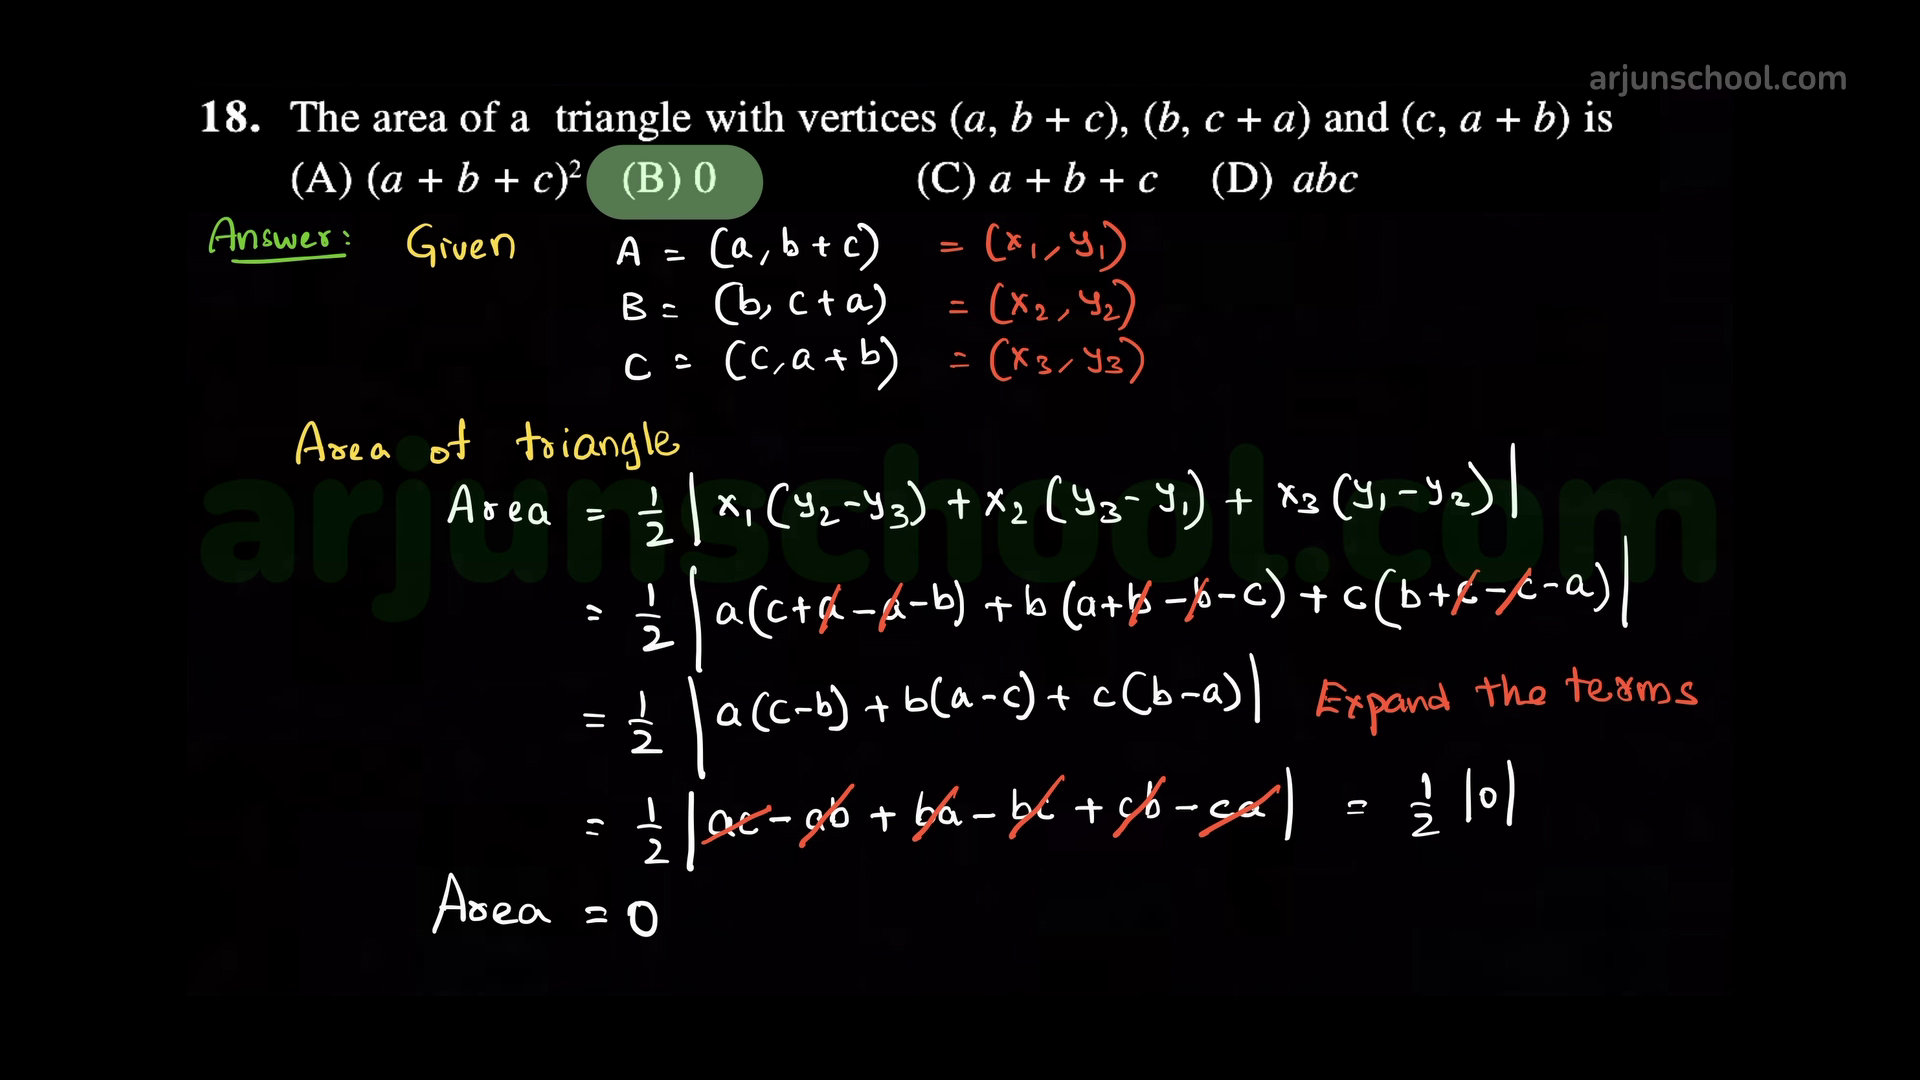 arjunschool.com
18. The area of a triangle with vertices (a, b + c), (b, c + a) and (c, a + b) is
(A) (a + b + c)² (B) 0 (C) a + b + c (D) abc
Answer: Given A = (a, b + c) = (x₁, y₁)
B = (b, c + a) = (x₂, y₂)
C = (c, a + b) = (x₃, y₃)
Area of triangle
arjunschool.com
Area = 1/2 | x₁(y₂-y₃) + x₂(y₃-y₁) + x₃(y₁-y₂) |
= 1/2 | a(c+a-a-b) + b(a+b-b-c) + c(b+c-c-a) |
= 1/2 | a(c-b) + b(a-c) + c(b-a) | Expand the terms
= 1/2 | ac - ab + ba - bc + cb - ca | = 1/2 |0|
Area = 0